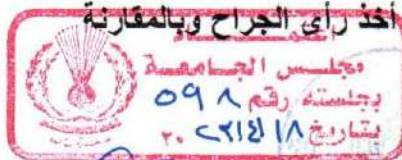 أخذ رأى الجراح وبالمقارنة
مجلس الجامعة
بجلسته رقم ٥٩٨
بتاريخ